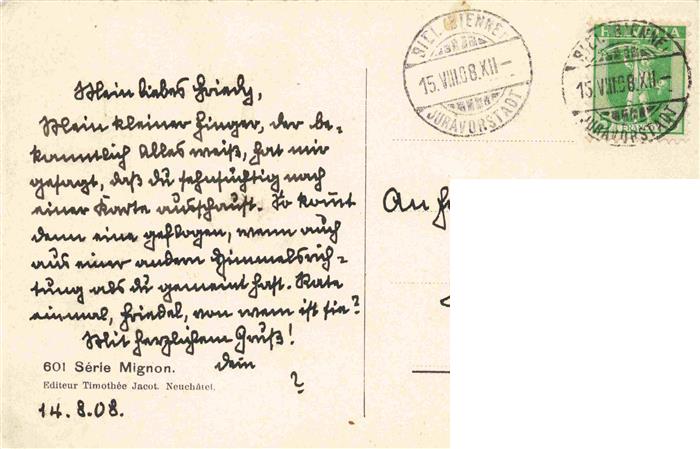 Mein liebes Friedy,
Mein kleiner Finger, der be-
kanntlich Alles weiß, hat mir
gesagt, daß du sehnsüchtig nach
einer Karte ausschaust. So kommt
denn eine geflogen, wenn auch
aus einer andern Himmelsrich-
tung als du gemeint hast. Rate
einmal, Friedel, von wem ist sie?
Mit herzlichem Gruß!
dein
?
601 Série Mignon.
Editeur Timothée Jacot. Neuchâtel.
14.8.08.
BIEL (BIENNE)
15.VIII.08.XII-
JURAVORSTADT
BIEL (BIENNE)
15.VIII.08.XII-
JURAVORSTADT
An